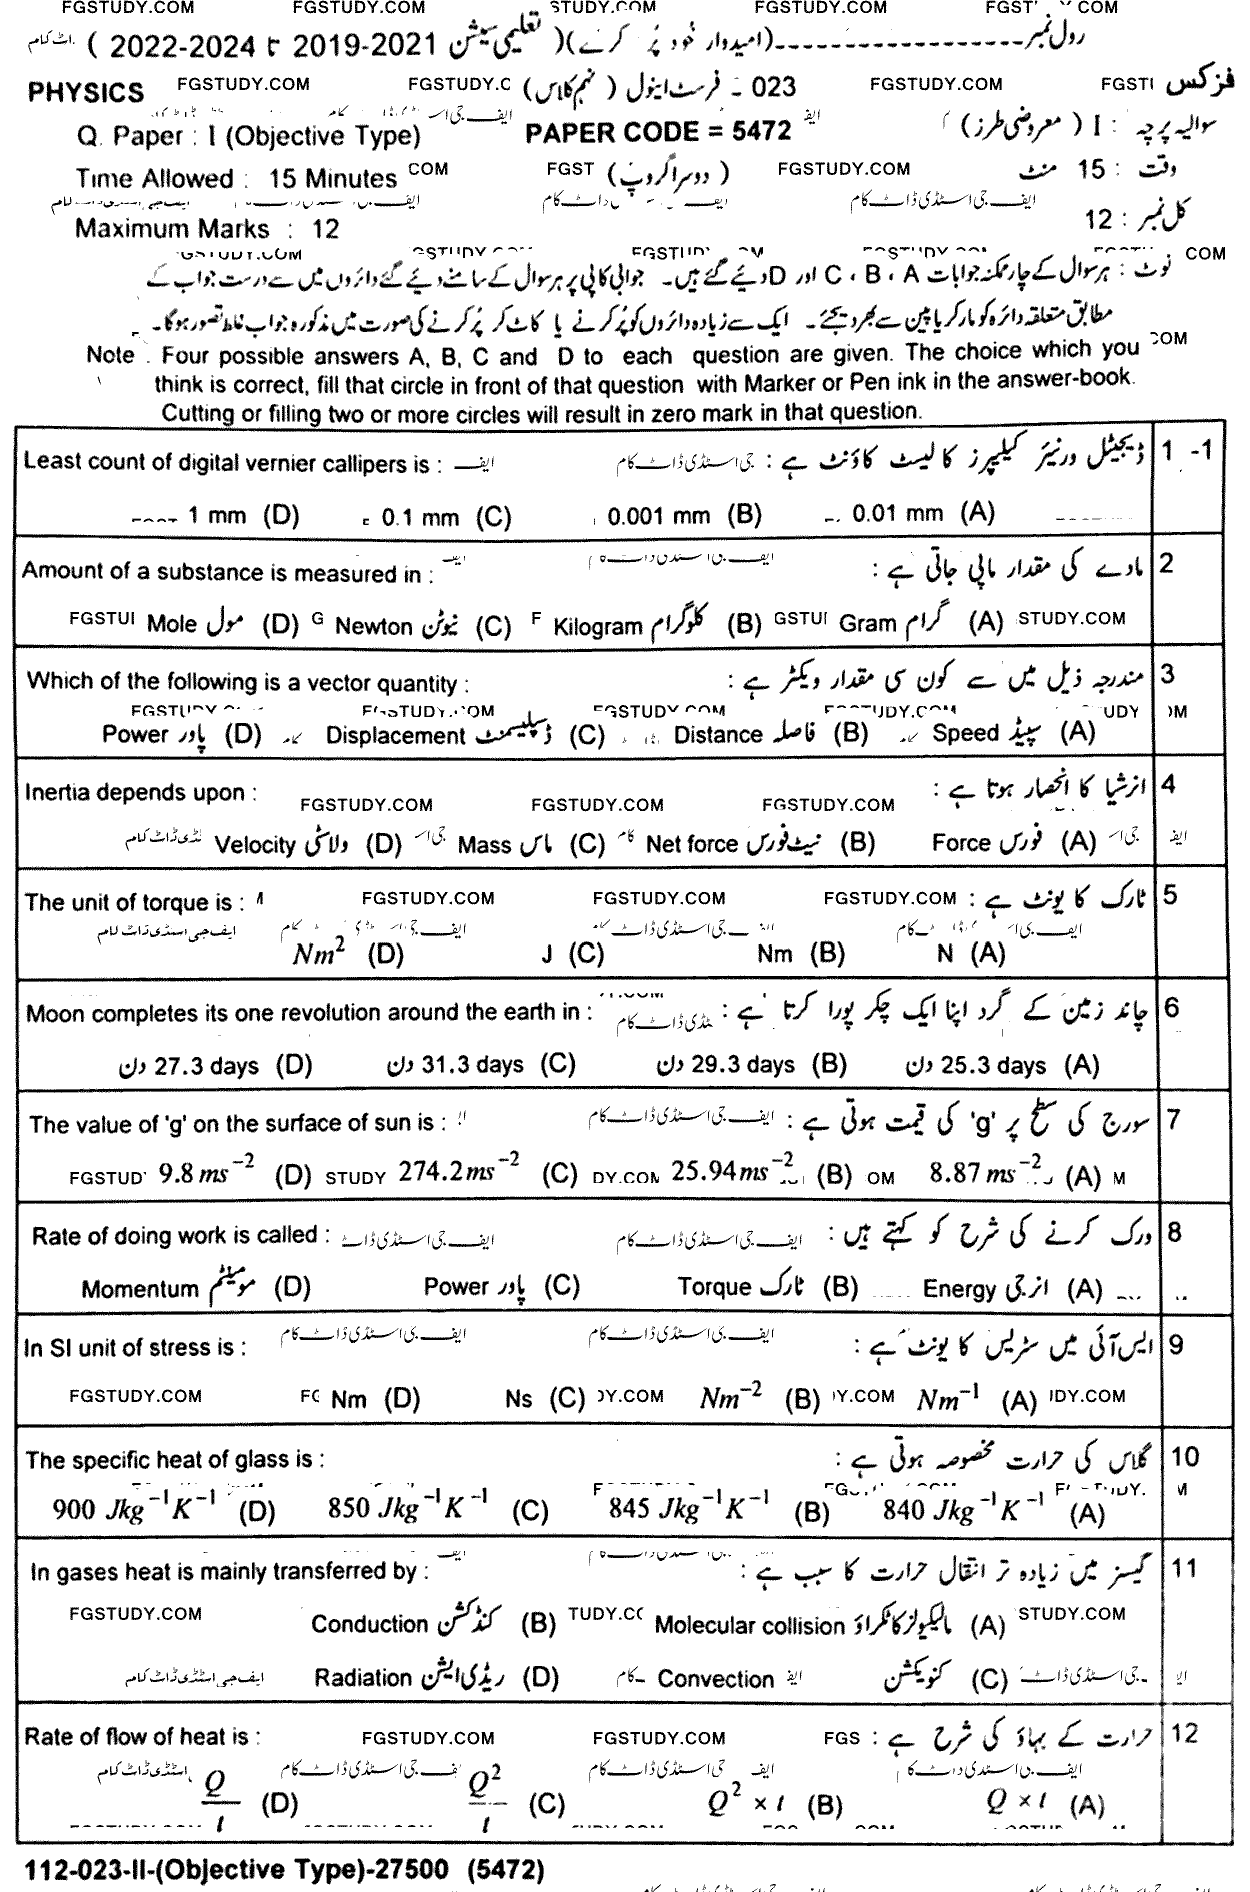 FGSTUDY.COM FGSTUDY.COM STUDY.COM FGSTUDY.COM COM
رول نمبر (امیدوار خود پُر کرے) ( تعلیمی سیشن 2021-2019 تا 2024-2022 )
PHYSICS FGSTUDY.COM 023 - فرسٹ اینول ( نہم کلاس) FGSTUDY.COM فزکس
Q. Paper : I (Objective Type) PAPER CODE = 5472 سوالیہ پرچہ : I ( معروضی طرز )
Time Allowed : 15 Minutes COM FGST ( دوسرا گروپ) FGSTUDY.COM وقت : 15 منٹ
Maximum Marks : 12 کل نمبر : 12
نوٹ : ہر سوال کے چار ممکنہ جوابات A ، B ، C اور D دیئے گئے ہیں۔ جوابی کاپی پر ہر سوال کے سامنے دیئے گئے دائروں میں سے درست جواب کے
مطابق متعلقہ دائرہ کو مارکر یا پین سے بھر دیجئے۔ ایک سے زیادہ دائروں کو پُر کرنے یا کاٹ کر پُر کرنے کی صورت میں مذکورہ جواب غلط تصور ہوگا۔
Note : Four possible answers A, B, C and D to each question are given. The choice which you
think is correct, fill that circle in front of that question with Marker or Pen ink in the answer-book.
Cutting or filling two or more circles will result in zero mark in that question.
Least count of digital vernier callipers is : ڈیجیٹل ورنیئر کیلیپرز کا لیسٹ کاؤنٹ ہے : 1 -1
1 mm (D) 0.1 mm (C) 0.001 mm (B) 0.01 mm (A)
Amount of a substance is measured in : مادے کی مقدار ماپی جاتی ہے : 2
Mole مول (D) Newton نیوٹن (C) Kilogram کلوگرام (B) Gram گرام (A) STUDY.COM
Which of the following is a vector quantity : مندرجہ ذیل میں سے کون سی مقدار ویکٹر ہے : 3
Power پاور (D) Displacement ڈسپلیسمنٹ (C) Distance فاصلہ (B) Speed سپیڈ (A)
Inertia depends upon : FGSTUDY.COM FGSTUDY.COM FGSTUDY.COM انرشیا کا انحصار ہوتا ہے : 4
Velocity ولاسٹی (D) Mass ماس (C) Net force نیٹ فورس (B) Force فورس (A)
The unit of torque is : FGSTUDY.COM FGSTUDY.COM FGSTUDY.COM ٹارک کا یونٹ ہے : 5
Nm² (D) J (C) Nm (B) N (A)
Moon completes its one revolution around the earth in : چاند زمین کے گرد اپنا ایک چکر پورا کرتا ہے : 6
27.3 days دن (D) 31.3 days دن (C) 29.3 days دن (B) 25.3 days دن (A)
The value of 'g' on the surface of sun is : سورج کی سطح پر 'g' کی قیمت ہوتی ہے : 7
9.8 ms⁻² (D) 274.2 ms⁻² (C) 25.94 ms⁻² (B) 8.87 ms⁻² (A)
Rate of doing work is called : ورک کرنے کی شرح کو کہتے ہیں : 8
Momentum مومینٹم (D) Power پاور (C) Torque ٹارک (B) Energy انرجی (A)
In SI unit of stress is : ایس آئی میں سٹریس کا یونٹ ہے : 9
FGSTUDY.COM Nm (D) Ns (C) Nm⁻² (B) Nm⁻¹ (A)
The specific heat of glass is : گلاس کی حرارت مخصوصہ ہوتی ہے : 10
900 Jkg⁻¹K⁻¹ (D) 850 Jkg⁻¹K⁻¹ (C) 845 Jkg⁻¹K⁻¹ (B) 840 Jkg⁻¹K⁻¹ (A)
In gases heat is mainly transferred by : گیسز میں زیادہ تر انتقال حرارت کا سبب ہے : 11
FGSTUDY.COM Conduction کنڈکشن (B) Molecular collision مالیکیولز کا ٹکراؤ (A) STUDY.COM
Radiation ریڈی ایشن (D) Convection کنویکشن (C)
Rate of flow of heat is : FGSTUDY.COM FGSTUDY.COM FGS حرارت کے بہاؤ کی شرح ہے : 12
Q/t (D) Q²/t (C) Q² × t (B) Q × t (A)
112-023-II-(Objective Type)-27500 (5472)